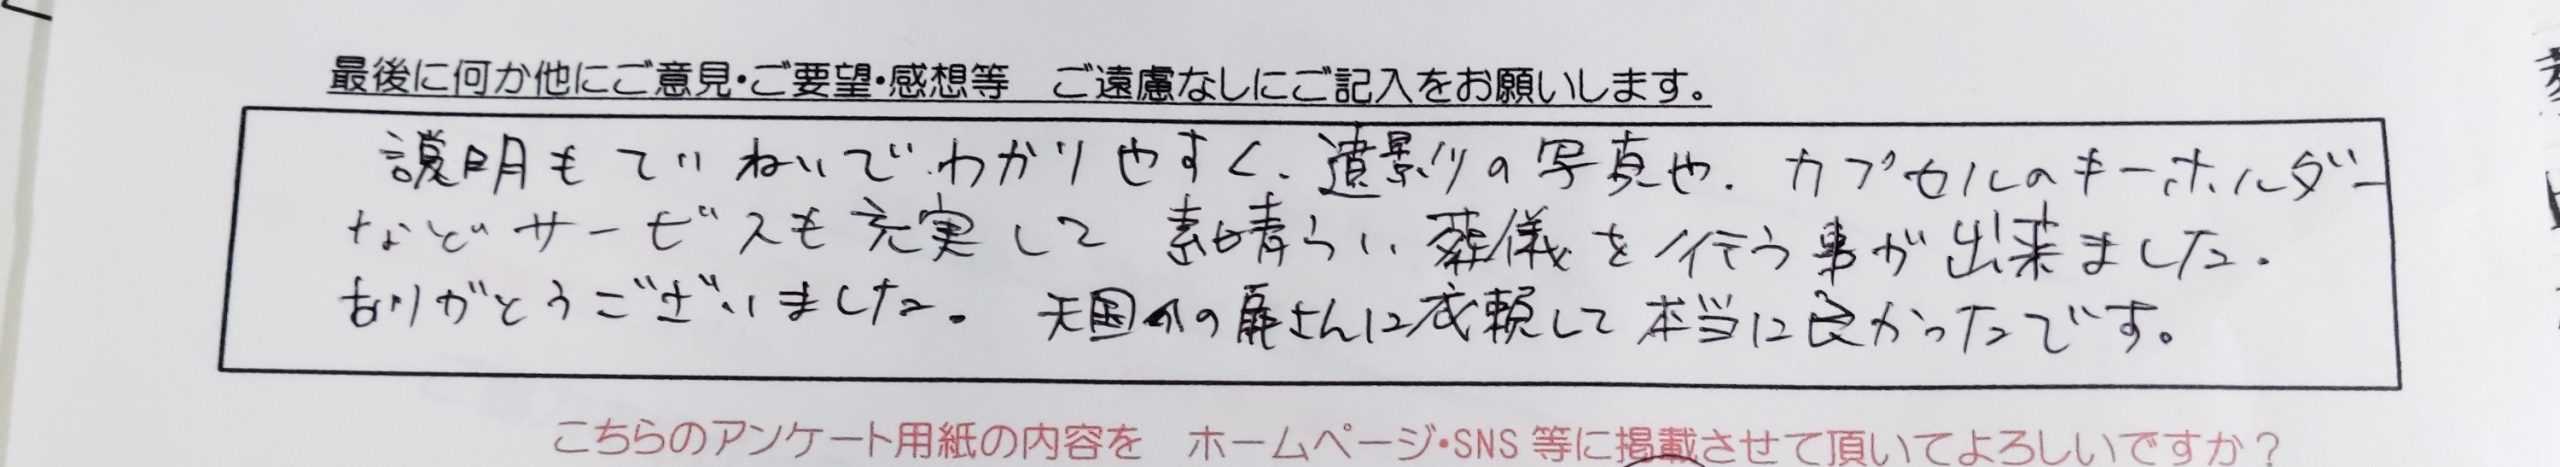 最後に何か他にご意見・ご要望・感想等　ご遠慮なしにご記入をお願いします。
説明もていねいでわかりやすく、遺影の写真や、カプセルのキーホルダー
などサービスも充実して 素晴らしい葬儀を行う事が出来ました。
ありがとうございました。天国への扉さんに依頼して本当に良かったです。
こちらのアンケート用紙の内容を　ホームページ・SNS 等に掲載させて頂いてよろしいですか？